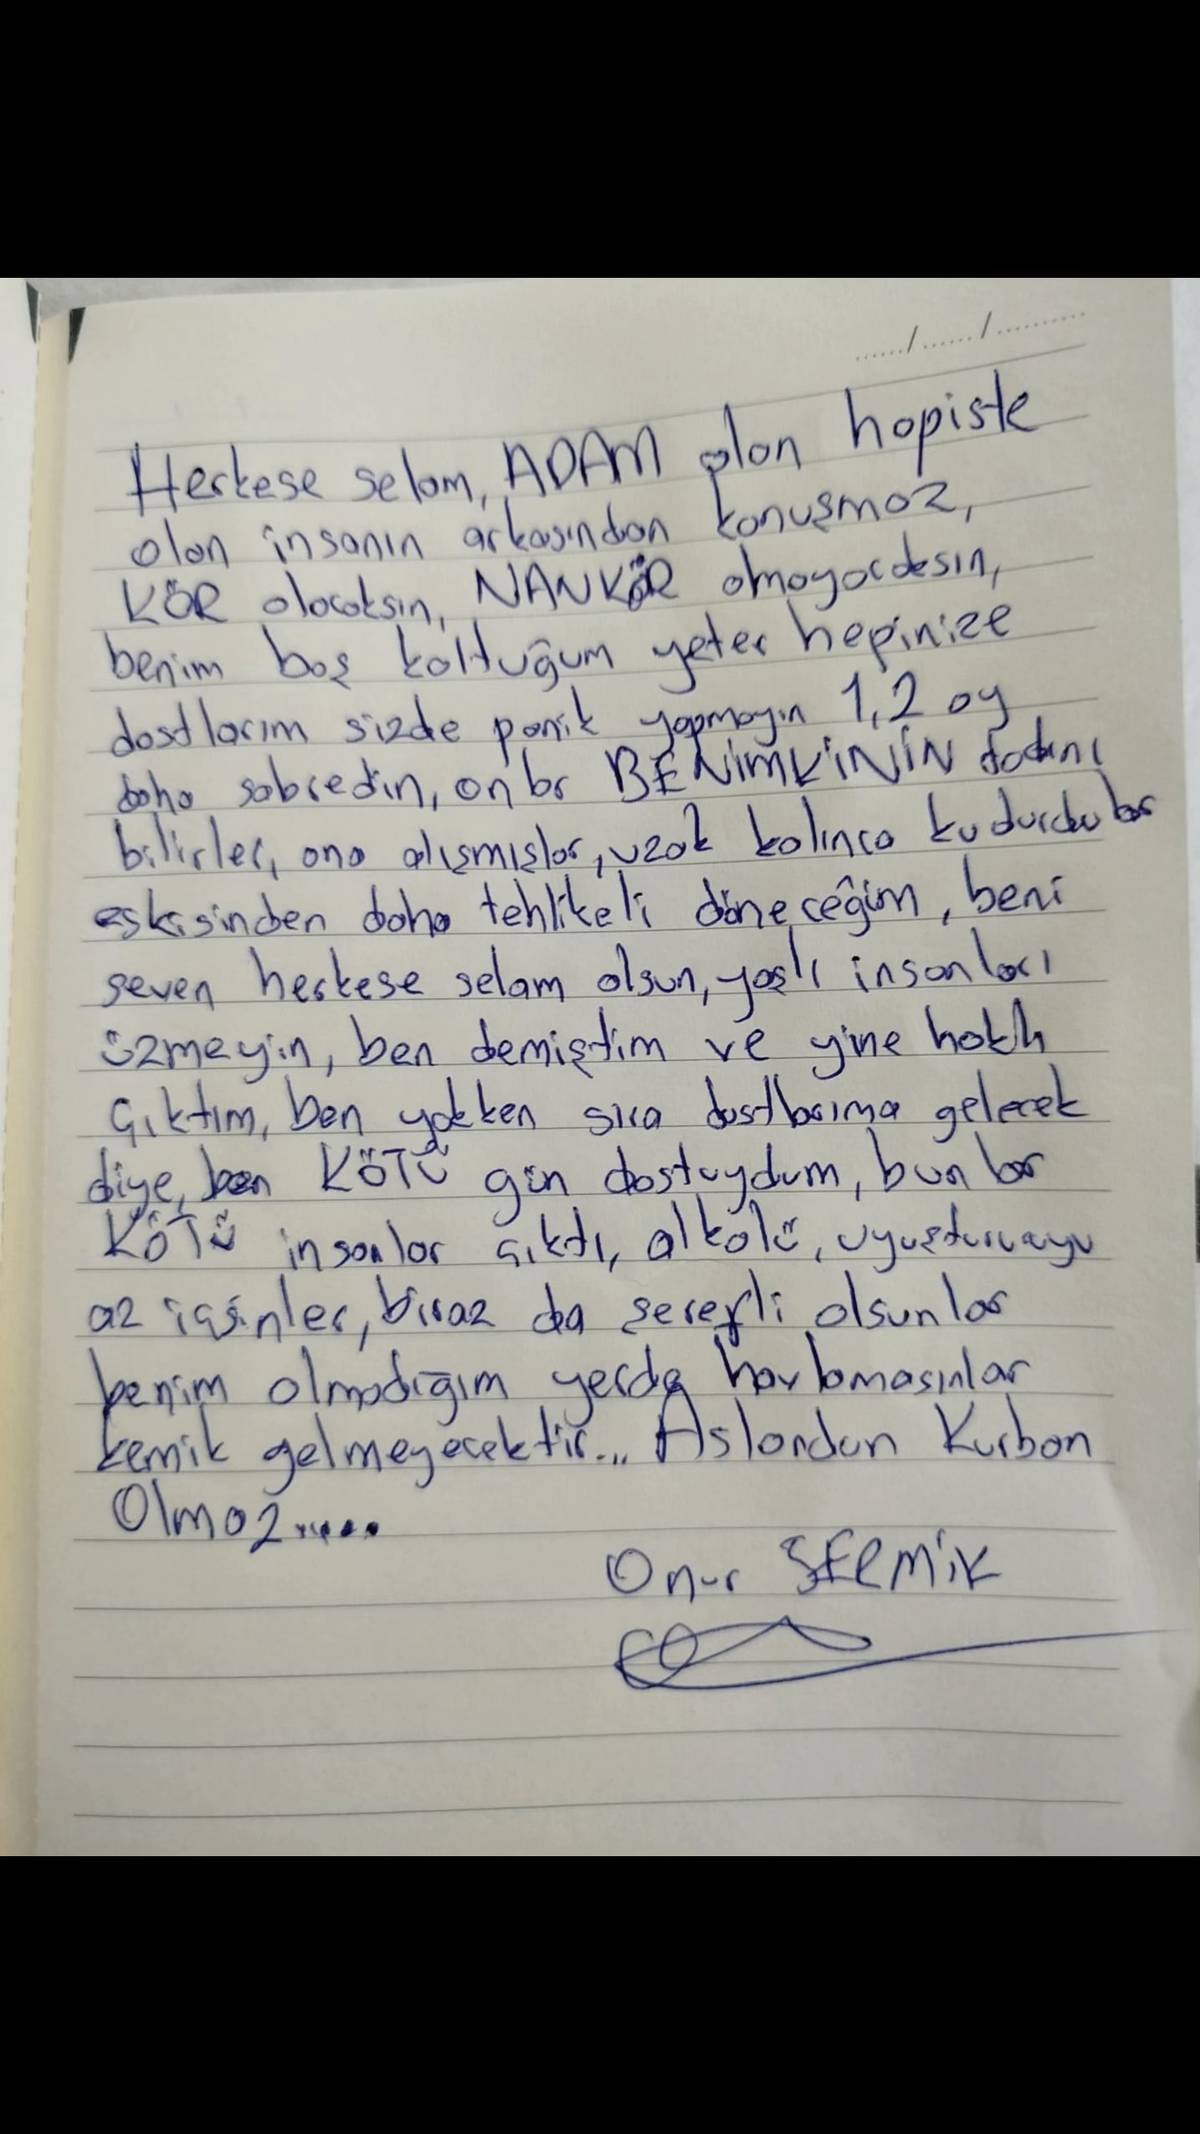 ...../....../..........
Herkese selam, ADAM olan hapiste
olan insanın arkasından konuşmaz,
KÖR olacaksın, NANKÖR olmayacaksın,
benim boş koltuğum yeter hepinize
dostlarım sizde panik yapmayın 1,2 ay
daha sabredin, onlar BENİMKİNİN tadını
bilirler, ona alışmışlar, uzak kalınca kudurdular
eskisinden daha tehlikeli döneceğim, beni
seven herkese selam olsun, yaşlı insanları
üzmeyin, ben demiştim ve yine haklı
çıktım, ben yokken sıra dostlarıma gelecek
diye, ben KÖTÜ gün dostuydum, bunlar
KÖTÜ insanlar çıktı, alkolü, uyuşturucuyu
az içsinler, biraz da şerefli olsunlar
benim olmadığım yerde havlamasınlar
kemik gelmeyecektir... Aslandan Kurban
Olmaz.....
Onur